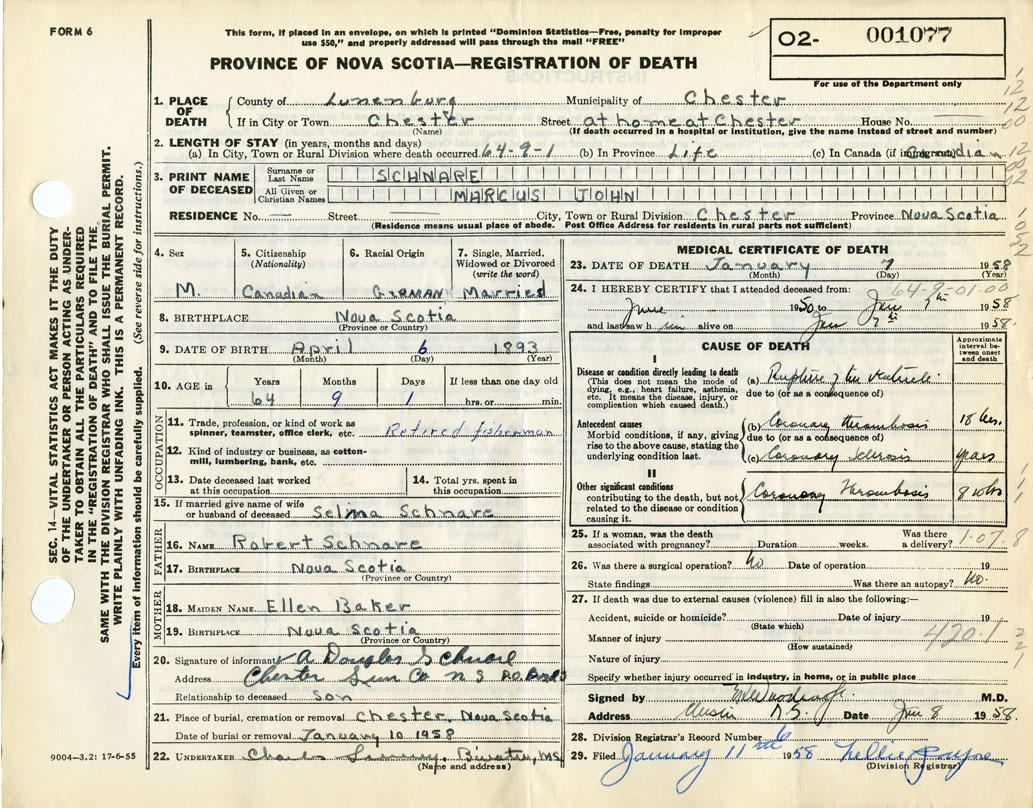 FORM 6
This form, if placed in an envelope, on which is printed "Dominion Statistics—Free, penalty for improper
use $50," and properly addressed will pass through the mail "FREE"
02- 001077
For use of the Department only
PROVINCE OF NOVA SCOTIA—REGISTRATION OF DEATH
1. PLACE OF DEATH
County of Lunenburg Municipality of Chester
If in City or Town Chester Street at home at Chester House No.
(Name) (If death occurred in a hospital or institution, give the name instead of street and number)
2. LENGTH OF STAY (in years, months and days)
(a) In City, Town or Rural Division where death occurred 64-9-1 (b) In Province Life (c) In Canada (if immigrant) Canadian
3. PRINT NAME OF DECEASED
Surname or Last Name SCHNARE
All Given or Christian Names MARCUS JOHN
RESIDENCE No. Street City, Town or Rural Division Chester Province Nova Scotia
(Residence means usual place of abode. Post Office Address for residents in rural parts not sufficient)
4. Sex M.
5. Citizenship (Nationality) Canadian
6. Racial Origin GERMAN
7. Single, Married, Widowed or Divorced (write the word) Married
8. BIRTHPLACE Nova Scotia
(Province or Country)
9. DATE OF BIRTH April 6 1893
(Month) (Day) (Year)
10. AGE in Years Months Days If less than one day old
64 9 1 hrs. or min.
OCCUPATION
11. Trade, profession, or kind of work as spinner, teamster, office clerk, etc. Retired fisherman
12. Kind of industry or business, as cotton-mill, lumbering, bank, etc.
13. Date deceased last worked at this occupation
14. Total yrs. spent in this occupation
15. If married give name of wife or husband of deceased Selma Schnare
FATHER
16. NAME Robert Schnare
17. BIRTHPLACE Nova Scotia
(Province or Country)
MOTHER
18. MAIDEN NAME Ellen Baker
19. BIRTHPLACE Nova Scotia
(Province or Country)
20. Signature of informant A Douglas Schnare
Address Chester Lun Co N S P.O. Box
Relationship to deceased son
21. Place of burial, cremation or removal Chester, Nova Scotia
Date of burial or removal January 10 1958
22. UNDERTAKER
(Name and address)
MEDICAL CERTIFICATE OF DEATH
23. DATE OF DEATH January 7 1958
(Month) (Day) (Year)
24. I HEREBY CERTIFY that I attended deceased from: 64-9-01.00
June 1950 to Jan 7th 1958
and last saw him alive on Jan 7th 1958.
CAUSE OF DEATH
Approximate interval between onset and death
I
Disease or condition directly leading to death
(This does not mean the mode of dying, e.g., heart failure, asthenia, etc. It means the disease, injury, or complication which caused death.)
(a) Rupture of the ventricle
due to (or as a consequence of)
Antecedent causes
Morbid conditions, if any, giving rise to the above cause, stating the underlying condition last.
(b) Coronary thrombosis 18 hrs.
due to (or as a consequence of)
(c) Coronary Sclerosis years
II
Other significant conditions
contributing to the death, but not related to the disease or condition causing it.
Coronary thrombosis 8
25. If a woman, was the death associated with pregnancy? Duration weeks. Was there a delivery?
26. Was there a surgical operation? No Date of operation 19
State findings Was there an autopsy? No.
27. If death was due to external causes (violence) fill in also the following:—
Accident, suicide or homicide? Date of injury 19
(State which)
Manner of injury 420.1
(How sustained)
Nature of injury
Specify whether injury occurred in industry, in home, or in public place
Signed by M.D.
Address N.S. Date Jan 8 1958.
28. Division Registrar's Record Number 6
29. Filed January 11 1958 Nellie
(Division Registrar)
SEC. 14—VITAL STATISTICS ACT MAKES IT THE DUTY
OF THE UNDERTAKER OR PERSON ACTING AS UNDER-
TAKER TO OBTAIN ALL THE PARTICULARS REQUIRED
IN THE "REGISTRATION OF DEATH" AND TO FILE THE
SAME WITH THE DIVISION REGISTRAR WHO SHALL ISSUE THE BURIAL PERMIT.
WRITE PLAINLY WITH UNFADING INK. THIS IS A PERMANENT RECORD.
Every item of information should be carefully supplied. (See reverse side for instructions.)
9004—3.2: 17-6-55